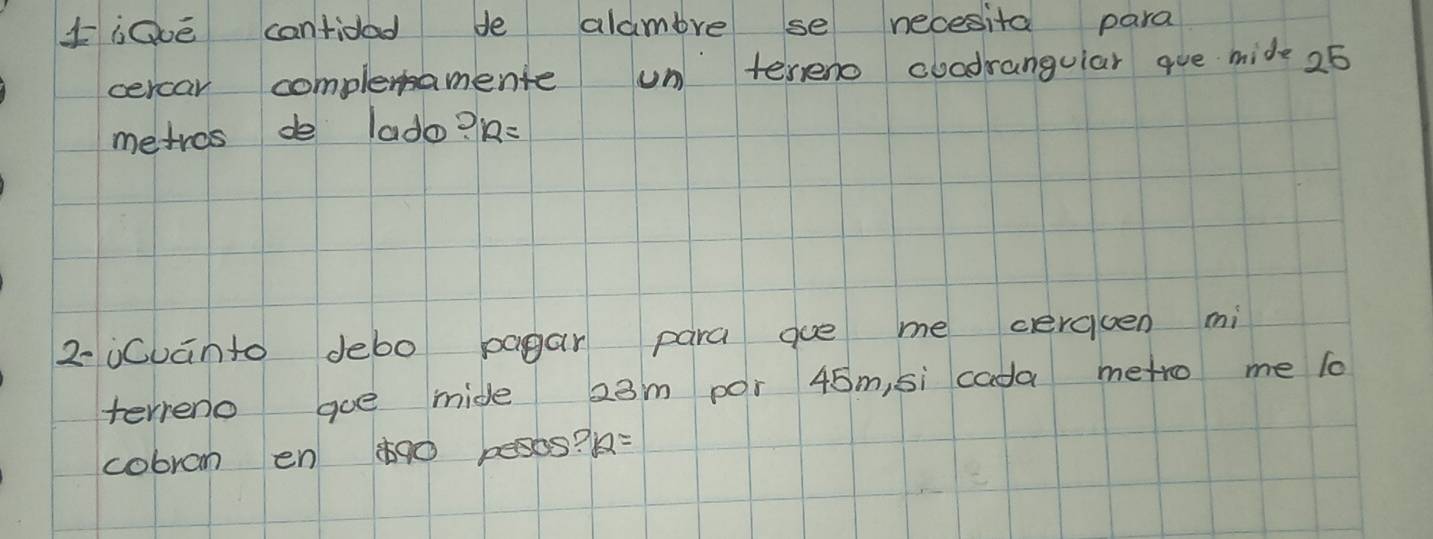 1- ¿Qué cantidad de alambre se necesita para
cercar completamente un terreno cuadrangular que mide 25
metros de lado? R=
2- ¿Cuánto debo pagar para que me cerquen mi
terreno que mide 23m por 45m, si cada metro me lo
cobran en $90 pesos? R=